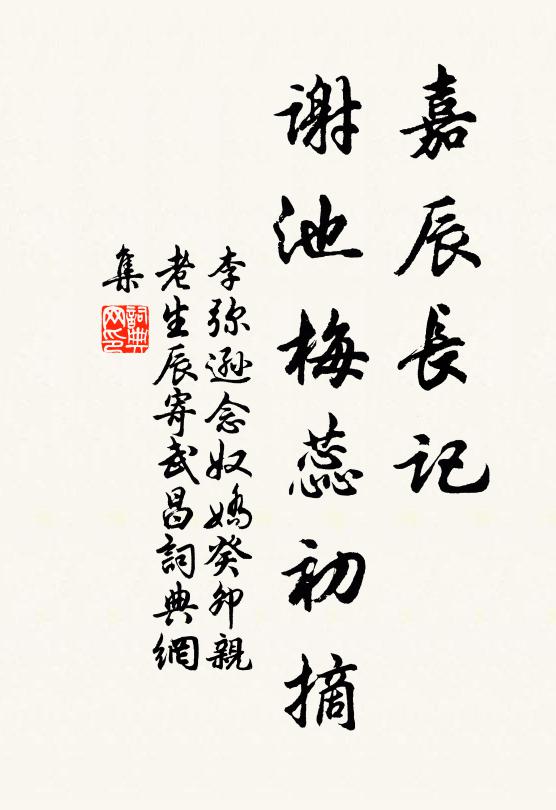 嘉辰長记
谢池梅蕊初摘
李弥遜念奴嬌癸卯親
老生辰寄武昌詞典網
集
詞典网印